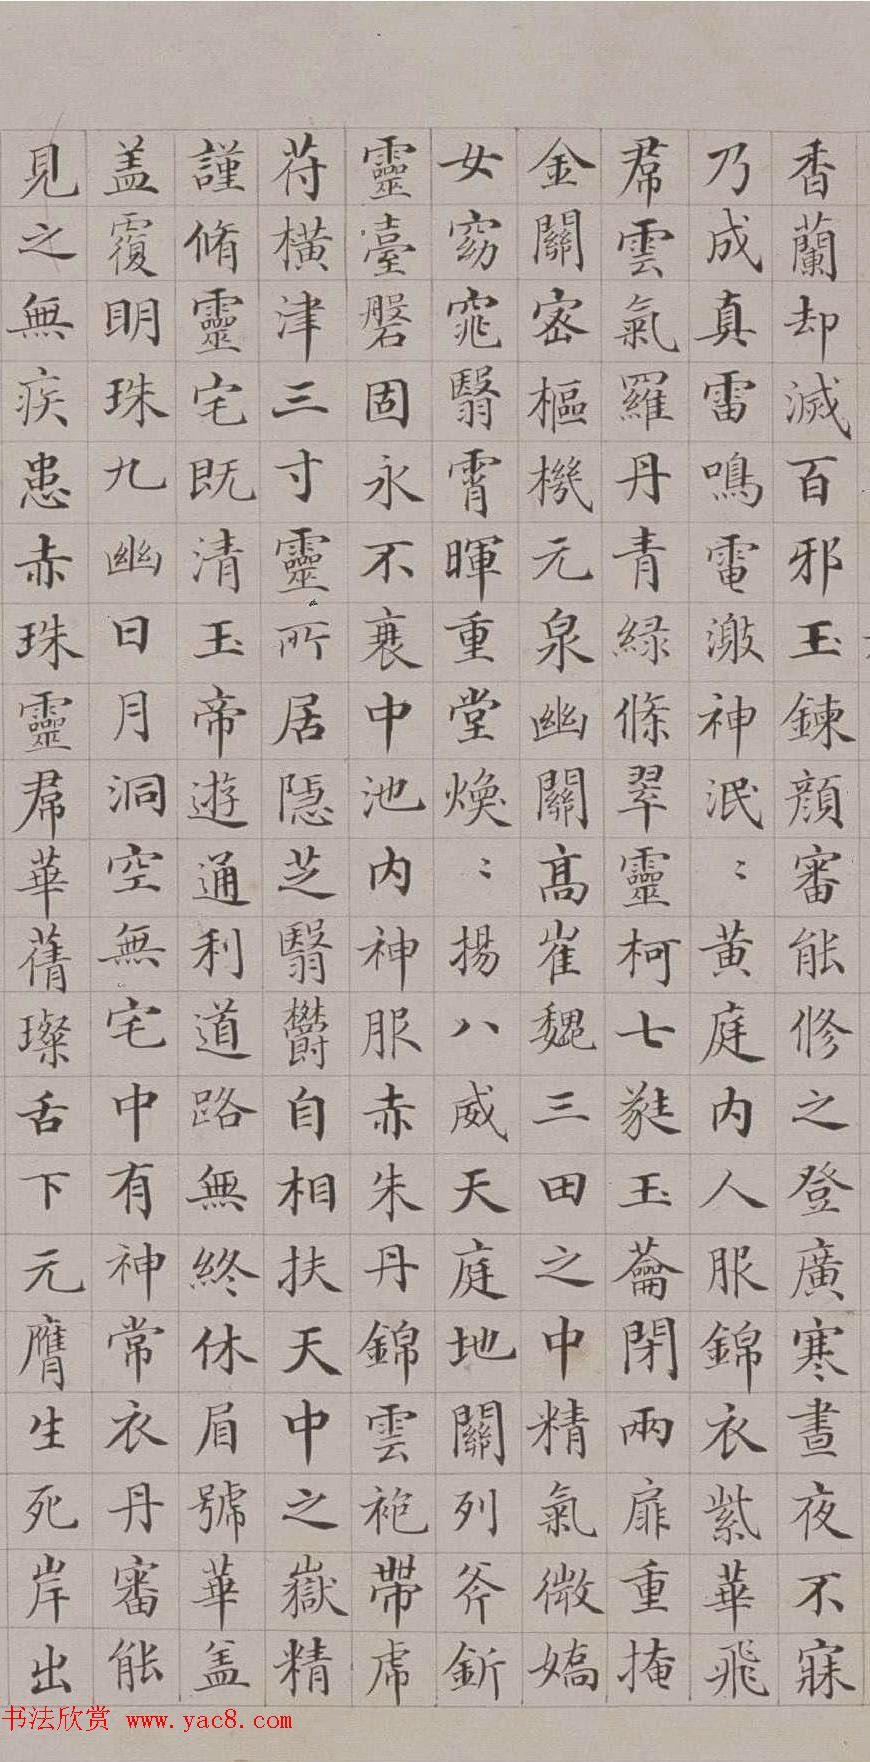 香蘭却滅百邪玉鍊顔審能修之登廣寒晝夜不寐
乃成真雷鳴電激神泯〻黄庭内人服錦衣紫華飛
帬雲氣羅丹青緑條翠靈柯七蕤玉蘥閉兩扉重掩
金關密樞機元泉幽關高崔巍三田之中精氣微嬌
女窈窕翳霄暉重堂煥〻揚八威天庭地關列斧釿
靈臺磐固永不衰中池内神服赤朱丹錦雲袍帶虎
苻横津三寸靈所居隱芝翳欝自相扶天中之嶽精
謹脩靈宅既清玉帝遊通利道路無終休眉號華盖
盖覆明珠九幽日月洞空無宅中有神常衣丹審能
見之無疾患赤珠靈帬華蒨璨舌下元膺生死岸出
书法欣赏 www.yac8.com